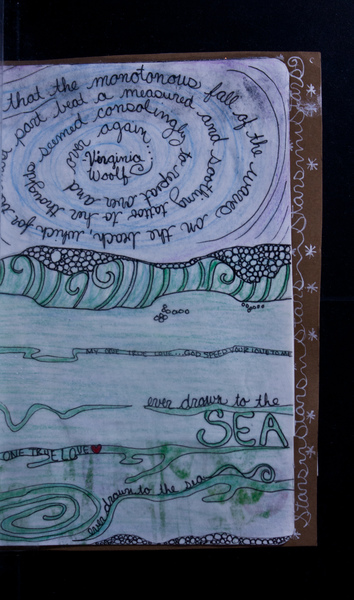 that the monotonous fall of the waves on the beach, which for the
a part beat a measured and soothing tattoo to her thoughts
seemed consolingly to repeat over and
over again...
Virginia
Woolf
MY ONE TRUE LOVE... GOD SPEED YOUR LOVE TO ME
ever drawn to the
SEA
ONE TRUE LOVE
ever drawn to the sea
Stars in Stars in Stars in Stars